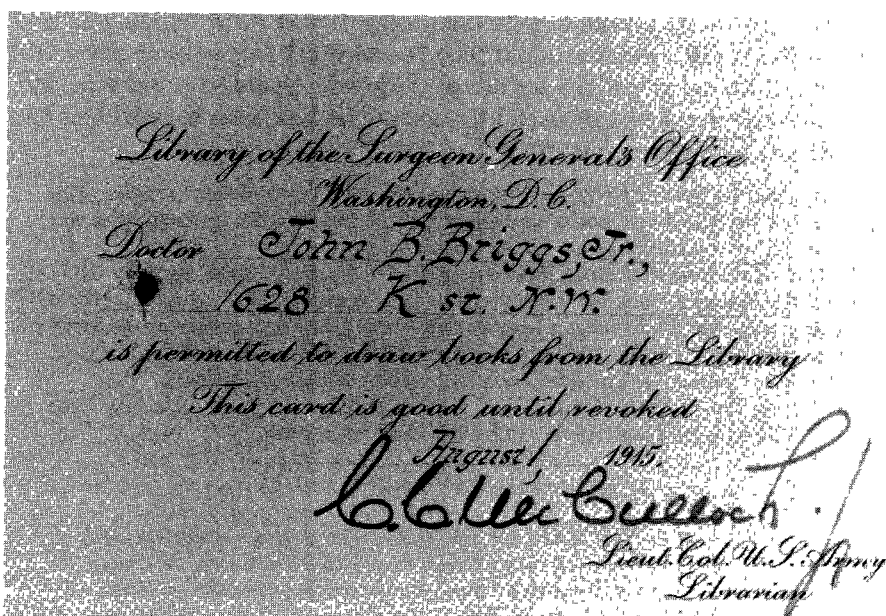 Library of the Surgeon General's Office
Washington, D.C.
Doctor John B. Briggs, Jr.,
1628 K st. N.W.
is permitted to draw books from the Library
This card is good until revoked
August 1, 1915.
C.C. McCulloch Jr.
Lieut. Col. U.S. Army
Librarian